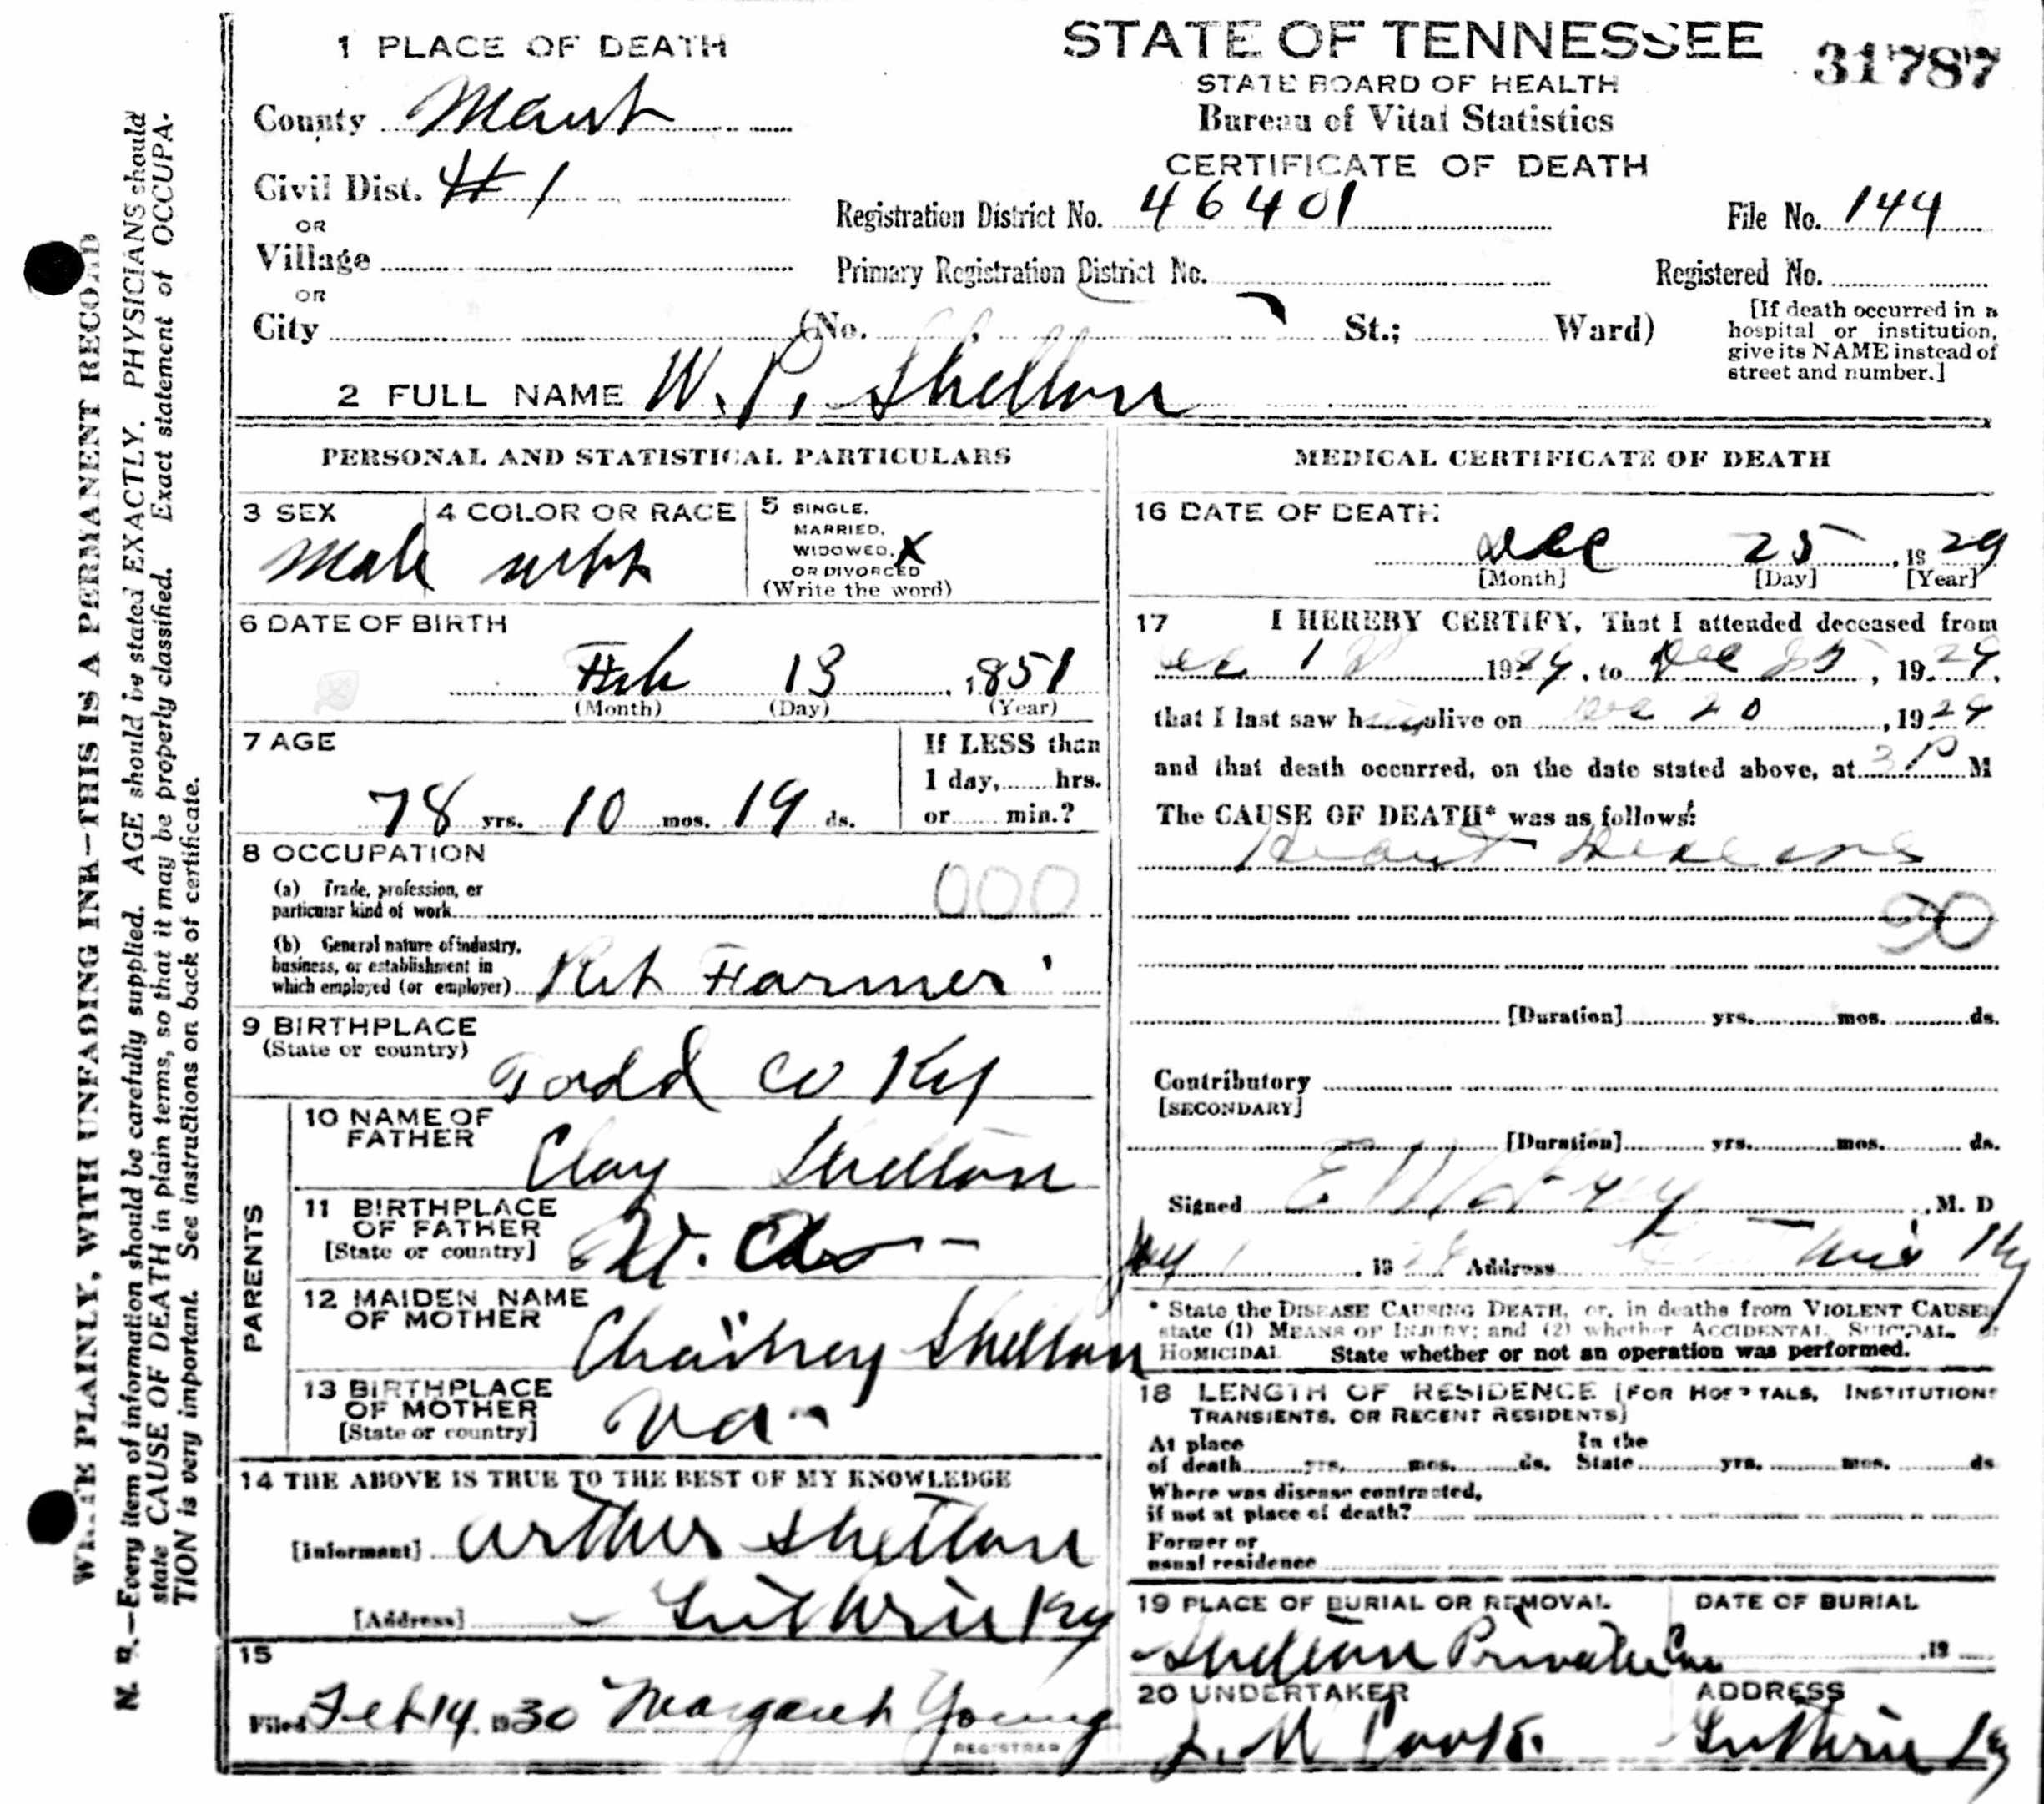 1 PLACE OF DEATH
STATE OF TENNESSEE
31787
STATE BOARD OF HEALTH
Bureau of Vital Statistics
CERTIFICATE OF DEATH
County Mont
Civil Dist. # 1
OR
Village
OR
City (No. , St.; Ward)
Registration District No. 46401
File No. 144
Primary Registration District No.
Registered No.
[If death occurred in a
hospital or institution,
give its NAME instead of
street and number.]
2 FULL NAME W. P. Shelton
PERSONAL AND STATISTICAL PARTICULARS
3 SEX
Male
4 COLOR OR RACE
5 SINGLE,
MARRIED,
WIDOWED, X
OR DIVORCED
(Write the word)
6 DATE OF BIRTH
Feb 13 1851
(Month) (Day) (Year)
7 AGE
78 yrs. 10 mos. 19 ds.
If LESS than
1 day, hrs.
or min.?
8 OCCUPATION
(a) Trade, profession, or
particular kind of work 000
(b) General nature of industry,
business, or establishment in
which employed (or employer) Ret Farmer
9 BIRTHPLACE
(State or country)
Todd Co Ky
PARENTS
10 NAME OF
FATHER
Clay Shelton
11 BIRTHPLACE
OF FATHER
[State or country]
12 MAIDEN NAME
OF MOTHER
Shelton
13 BIRTHPLACE
OF MOTHER
[State or country]
Va
14 THE ABOVE IS TRUE TO THE BEST OF MY KNOWLEDGE
[informant] Arthur Shelton
[Address] Guthrie Ky
15
Filed Feb 14, 1930 Margaret Young
REGISTRAR
MEDICAL CERTIFICATE OF DEATH
16 DATE OF DEATH
Dec 25, 1929
[Month] [Day] [Year]
17 I HEREBY CERTIFY, That I attended deceased from
1929, to Dec 25, 1929,
that I last saw him alive on Dec 20, 1929
and that death occurred, on the date stated above, at 3 P M
The CAUSE OF DEATH* was as follows:
Heart Disease
90
[Duration] yrs. mos. ds.
Contributory
[SECONDARY]
[Duration] yrs. mos. ds.
Signed M. D
19 Address Guthrie Ky
* State the DISEASE CAUSING DEATH, or, in deaths from VIOLENT CAUSES,
state (1) MEANS OF INJURY; and (2) whether ACCIDENTAL, SUICIDAL, or
HOMICIDAL State whether or not an operation was performed.
18 LENGTH OF RESIDENCE [FOR HOSPITALS, INSTITUTIONS
TRANSIENTS, OR RECENT RESIDENTS]
At place
of death yrs. mos. ds.
In the
State yrs. mos. ds
Where was disease contracted,
if not at place of death?
Former or
usual residence
19 PLACE OF BURIAL OR REMOVAL
Shelton Private Cem
DATE OF BURIAL
, 19
20 UNDERTAKER
J. M Cook
ADDRESS
Guthrie Ky
WRITE PLAINLY, WITH UNFADING INK—THIS IS A PERMANENT RECORD
N. B.—Every item of information should be carefully supplied. AGE should be stated EXACTLY. PHYSICIANS should
state CAUSE OF DEATH in plain terms, so that it may be properly classified. Exact statement of OCCUPA-
TION is very important. See instructions on back of certificate.